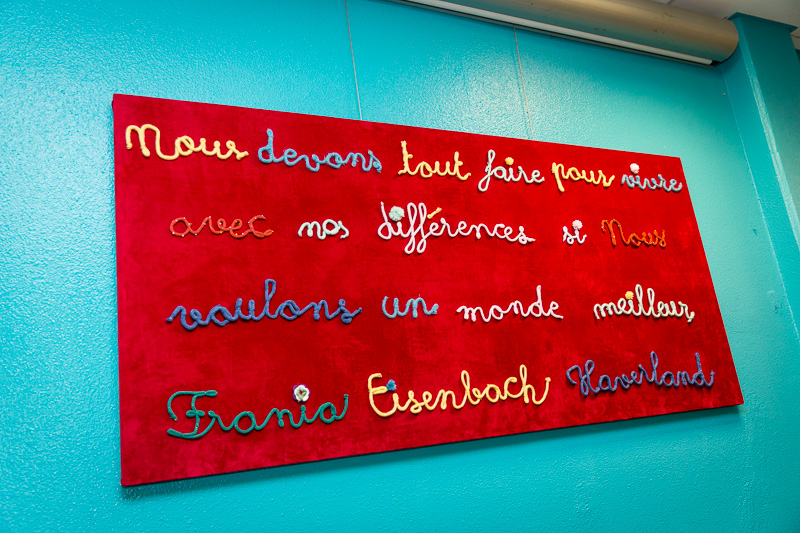 Nous devons tout faire pour vivre
avec nos différences si Nous
voulons un monde meilleur
Frania Eisenbach Haverland